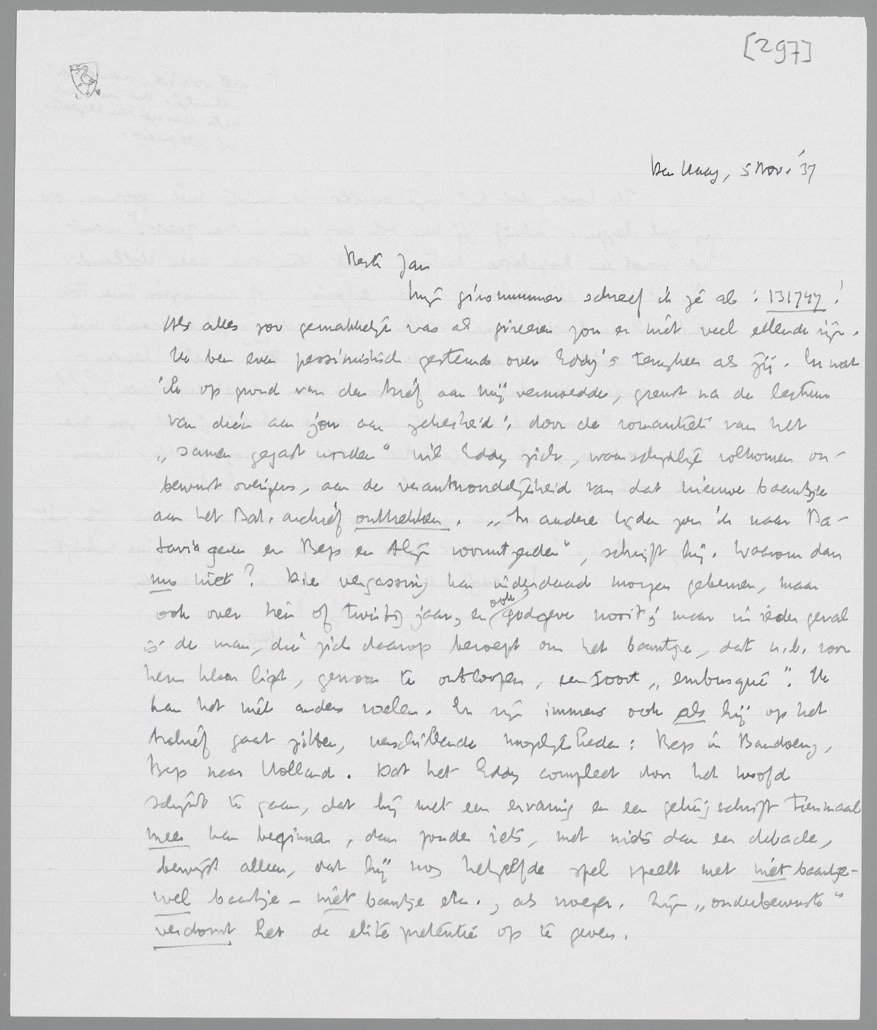 [297]
Den Haag, 5 Nov. '37
Beste Jan
Mijn gironummer schreef ik je al: 131747!
Als alles zoo gemakkelijk was als gireeren zou er niet veel ellende zijn.
Ik ben even pessimistisch gestemd over Eddy's terugkeer als jij. En wat
ik op grond van den brief aan mij vermoedde, grenst na de lectuur
van dién aan jou aan zekerheid: door de romantiek van het
„samen gegast worden" wil Eddy zich, waarschijnlijk volkomen on-
bewust overigens, aan de verantwoordelijkheid van dat nieuwe baantje
aan het Bat. archief onttrekken. „In andere tijden zou ik naar Ba-
tavia gaan en Bep en Alijn vooruitzenden", schrijft hij. Waarom dan
nu niet? Die vergassing kan inderdaad morgen gebeuren, maar
ook over tien of twintig jaar, en ook, godgeve nooit; maar in ieder geval
is de man, die zich daarop beroept om het baantje, dat n.b. voor
hem klaar ligt, gewoon te ontloopen, een soort „embusqué". Ik
kan het niet anders voelen. Er zijn immers ook als hij op het
Archief gaat zitten, verschillende mogelijkheden: Bep in Bandoeng,
Bep naar Holland. Dat het Eddy compleet door het hoofd
schijnt te gaan, dat hij met een ervaring en een getuigschrift tienmaal
meer kan beginnen, dan zonder iets, met niets dan een debacle,
bewijst alleen, dat hij nog hetzelfde spel speelt met niet baantje-
wel baantje – niet baantje etc., als vroeger. Zijn „onderbewuste"
verdomt het de elite pretentie op te geven.